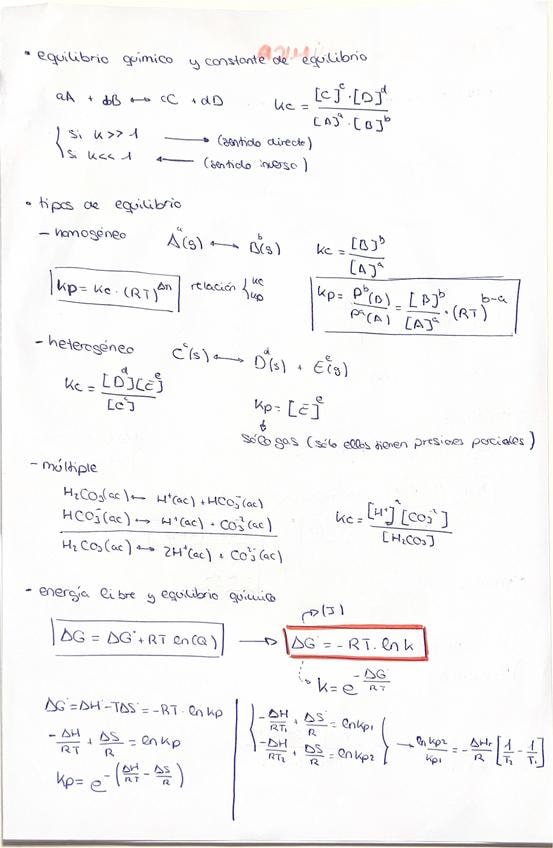 • equilibrio químico y constante de equilibrio
aA + bB ↔ cC + dD Kc = [C]^c · [D]^d / [A]^a · [B]^b
si K >> 1 → (sentido directo)
si K << 1 ← (sentido inverso)
• tipos de equilibrio
– homogéneo A^a(g) ↔ B^b(g) Kc = [B]^b / [A]^a
Kp = Kc · (RT)^Δn relación { Kc Kp Kp = P^b(B) / P^a(A) = [B]^b / [A]^a · (RT)^b-a
– heterogéneo C^c(s) ↔ D^d(s) + E^e(g)
Kc = [D]^d [E]^e / [C^c] Kp = [E]^e
sólo gas (sólo ellos tienen presiones parciales)
– múltiple
H₂CO₃(ac) ↔ H⁺(ac) + HCO₃⁻(ac)
HCO₃⁻(ac) ↔ H⁺(ac) + CO₃²⁻(ac) Kc = [H⁺]² [CO₃²⁻] / [H₂CO₃]
H₂CO₃(ac) ↔ 2H⁺(ac) + CO₃²⁻(ac)
– energía libre y equilibrio químico
(J)
ΔG = ΔG° + RT ln(Q) → ΔG° = -RT · ln K
K = e^-ΔG°/RT
ΔG° = ΔH° - TΔS° = -RT · ln Kp
-ΔH/RT + ΔS/R = ln Kp
Kp = e^-(ΔH/RT - ΔS/R)
-ΔH/RT₁ + ΔS/R = ln Kp₁
-ΔH/RT₂ + ΔS/R = ln Kp₂
→ ln Kp₂/Kp₁ = -ΔHr/R [1/T₂ - 1/T₁]